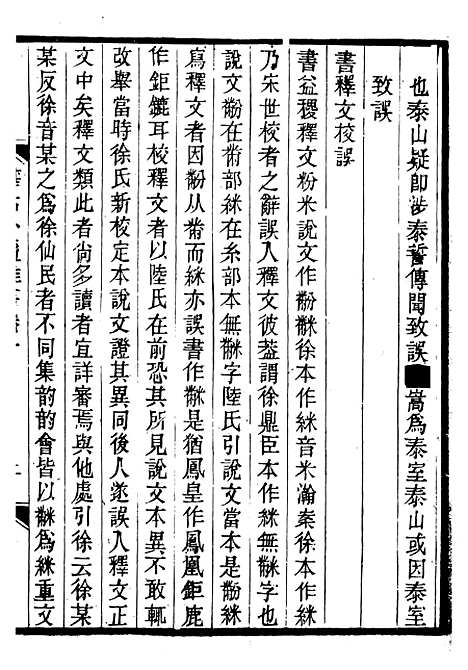 也泰山疑卽涉泰誓傳聞致誤嵩爲泰室泰山或因泰室
致誤
書釋文校誤
書益稷釋文粉米說文作黺䋛徐本作絲音米瀚案徐本作絲
乃宋世校者之辭誤入釋文彼葢謂徐鼎臣本作絲無䋛字也
說文黺在黹部絲在糸部本無䋛字陸氏引說文當本是黺絲
寫釋文者因黺从黹而絲亦誤書作䋛是猶鳳皇作鳳凰鉅鹿
作鉅鏕耳校釋文者以陸氏在前恐其所見說文本異不敢輒
改舉當時徐氏新校定本說文證其異同後人遂誤入釋文正
文中矣釋文類此者尙多讀者宜詳審焉與他處引徐云徐某
某反徐音某之爲徐仙民者不同集韵韵會皆以䋛爲絲重文